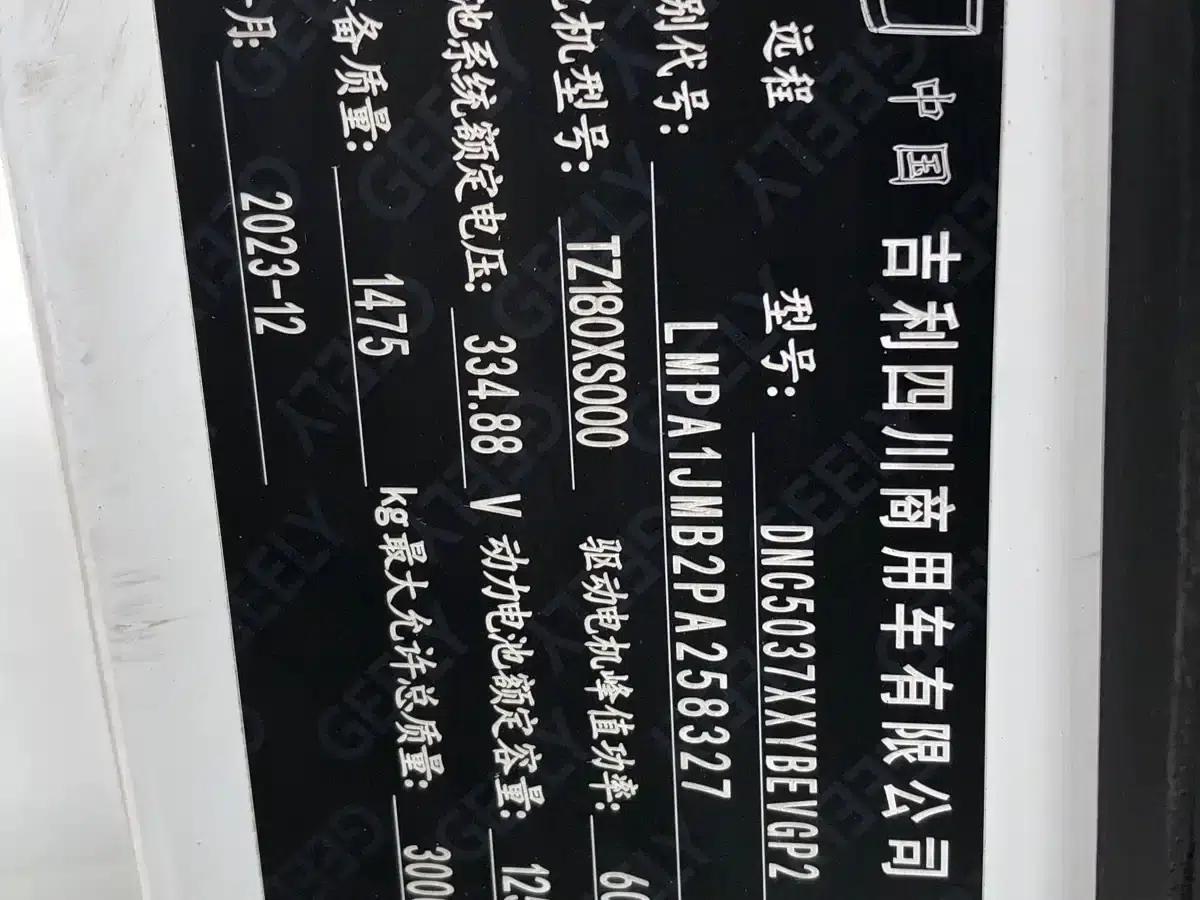 中国 吉利四川商用车有限公司
远程 型号: DNC5037XXYBEVGP2
别代号: LMPA1JMB2PA258327
机型号: TZ180XS000 驱动电机峰值功率: 60
池系统额定电压: 334.88 V 动力电池额定容量: 125
备质量: 1475 kg 最大允许总质量: 300
月: 2023-12
GEELY